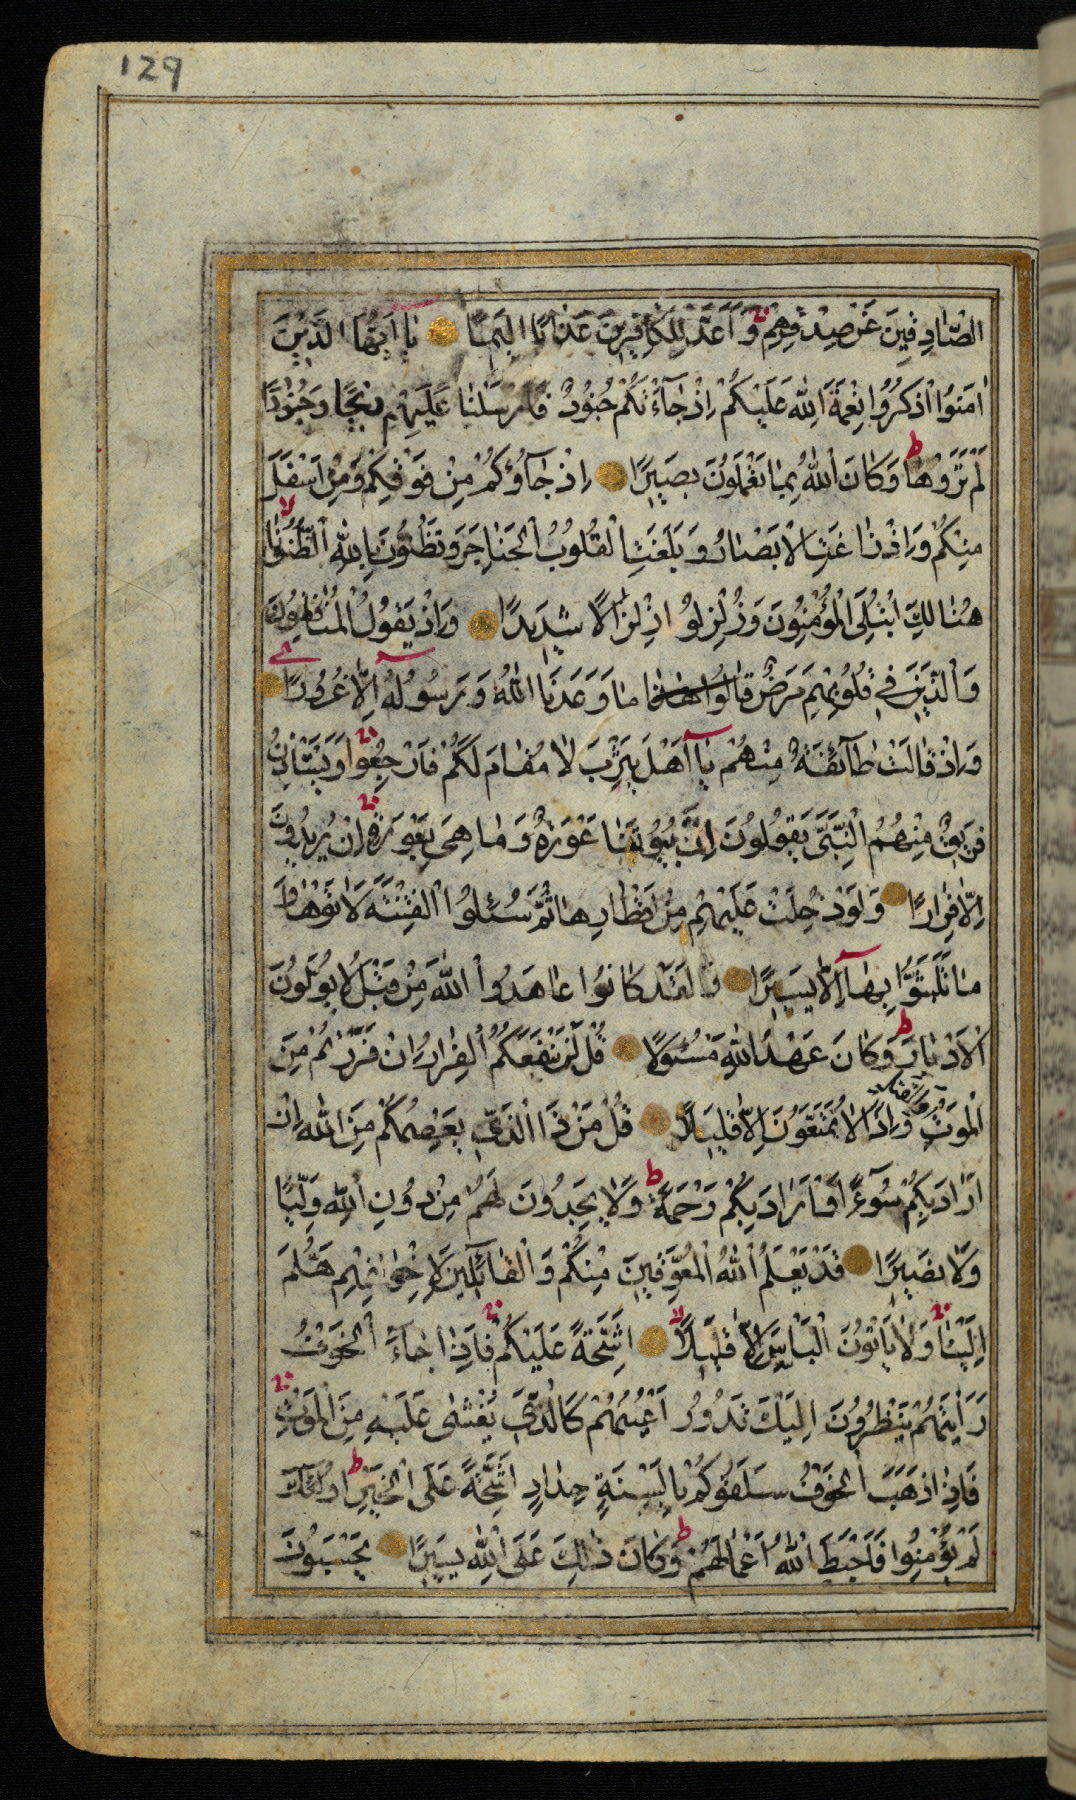 129
الصَّادِقِينَ عَنْ صِدْقِهِمْ وَأَعَدَّ لِلْكَافِرِينَ عَذَابًا أَلِيمًا يَا أَيُّهَا الَّذِينَ
اٰمَنُوا اذْكُرُوا نِعْمَةَ اللهِ عَلَيْكُمْ اِذْ جَآءَتْكُمْ جُنُودٌ فَاَرْسَلْنَا عَلَيْهِمْ رِيْحًا وَجُنُودًا
لَمْ تَرَوْهَا ط وَكَانَ اللهُ بِمَا تَعْمَلُونَ بَصِيرًا اِذْ جَآؤُكُمْ مِنْ فَوْقِكُمْ وَمِنْ اَسْفَلَ
مِنْكُمْ وَاِذْ زَاغَتِ الْاَبْصَارُ وَبَلَغَتِ الْقُلُوبُ الْحَنَاجِرَ وَتَظُنُّونَ بِاللهِ الظُّنُونَا لا
هُنَالِكَ ابْتُلِيَ الْمُؤْمِنُونَ وَزُلْزِلُوا زِلْزَالًا شَدِيدًا وَاِذْ يَقُولُ الْمُنَافِقُونَ
وَالَّذِينَ فِي قُلُوبِهِمْ مَرَضٌ قَالُوا هٰذَا مَا وَعَدَنَا اللهُ وَرَسُولُهُ اِلَّا غُرُورًا
وَاِذْ قَالَتْ طَآئِفَةٌ مِنْهُمْ يَآ اَهْلَ يَثْرِبَ لَا مُقَامَ لَكُمْ فَارْجِعُوا وَيَسْتَأْذِنُ
فَرِيقٌ مِنْهُمُ النَّبِيَّ يَقُولُونَ اِنَّ بُيُوتَنَا عَوْرَةٌ وَمَا هِيَ بِعَوْرَةٍ اِنْ يُرِيدُونَ
اِلَّا فِرَارًا وَلَوْ دُخِلَتْ عَلَيْهِمْ مِنْ اَقْطَارِهَا ثُمَّ سُئِلُوا الْفِتْنَةَ لَاٰتَوْهَا وَ
مَا تَلَبَّثُوا بِهَآ اِلَّا يَسِيرًا وَلَقَدْ كَانُوا عَاهَدُوا اللهَ مِنْ قَبْلُ لَا يُوَلُّونَ
الْاَدْبَارَ ط وَكَانَ عَهْدُ اللهِ مَسْئُولًا قُلْ لَنْ يَنْفَعَكُمُ الْفِرَارُ اِنْ فَرَرْتُمْ مِنَ
الْمَوْتِ اَوِ الْقَتْلِ وَاِذًا لَا تُمَتَّعُونَ اِلَّا قَلِيلًا قُلْ مَنْ ذَا الَّذِي يَعْصِمُكُمْ مِنَ اللهِ اِنْ
اَرَادَ بِكُمْ سُوٓءًا اَوْ اَرَادَ بِكُمْ رَحْمَةً ط وَلَا يَجِدُونَ لَهُمْ مِنْ دُونِ اللهِ وَلِيًّا
وَلَا نَصِيرًا قَدْ يَعْلَمُ اللهُ الْمُعَوِّقِينَ مِنْكُمْ وَالْقَآئِلِينَ لِاِخْوَانِهِمْ هَلُمَّ
اِلَيْنَا وَلَا يَأْتُونَ الْبَأْسَ اِلَّا قَلِيلًا لا اَشِحَّةً عَلَيْكُمْ فَاِذَا جَآءَ الْخَوْفُ
رَاَيْتَهُمْ يَنْظُرُونَ اِلَيْكَ تَدُورُ اَعْيُنُهُمْ كَالَّذِي يُغْشٰى عَلَيْهِ مِنَ الْمَوْتِ
فَاِذَا ذَهَبَ الْخَوْفُ سَلَقُوكُمْ بِاَلْسِنَةٍ حِدَادٍ اَشِحَّةً عَلَى الْخَيْرِ ط اُولٰئِكَ
لَمْ يُؤْمِنُوا فَاَحْبَطَ اللهُ اَعْمَالَهُمْ ط وَكَانَ ذٰلِكَ عَلَى اللهِ يَسِيرًا يَحْسَبُونَ